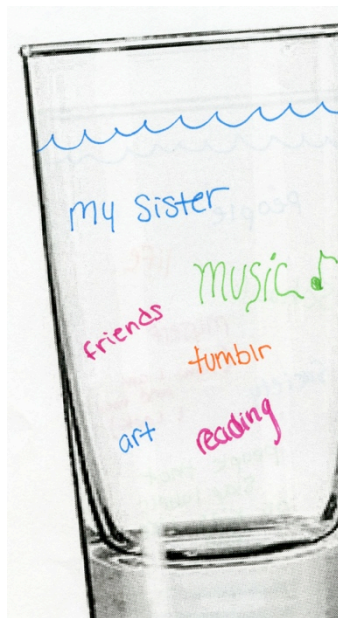 my sister
music
friends
tumblr
art
reading